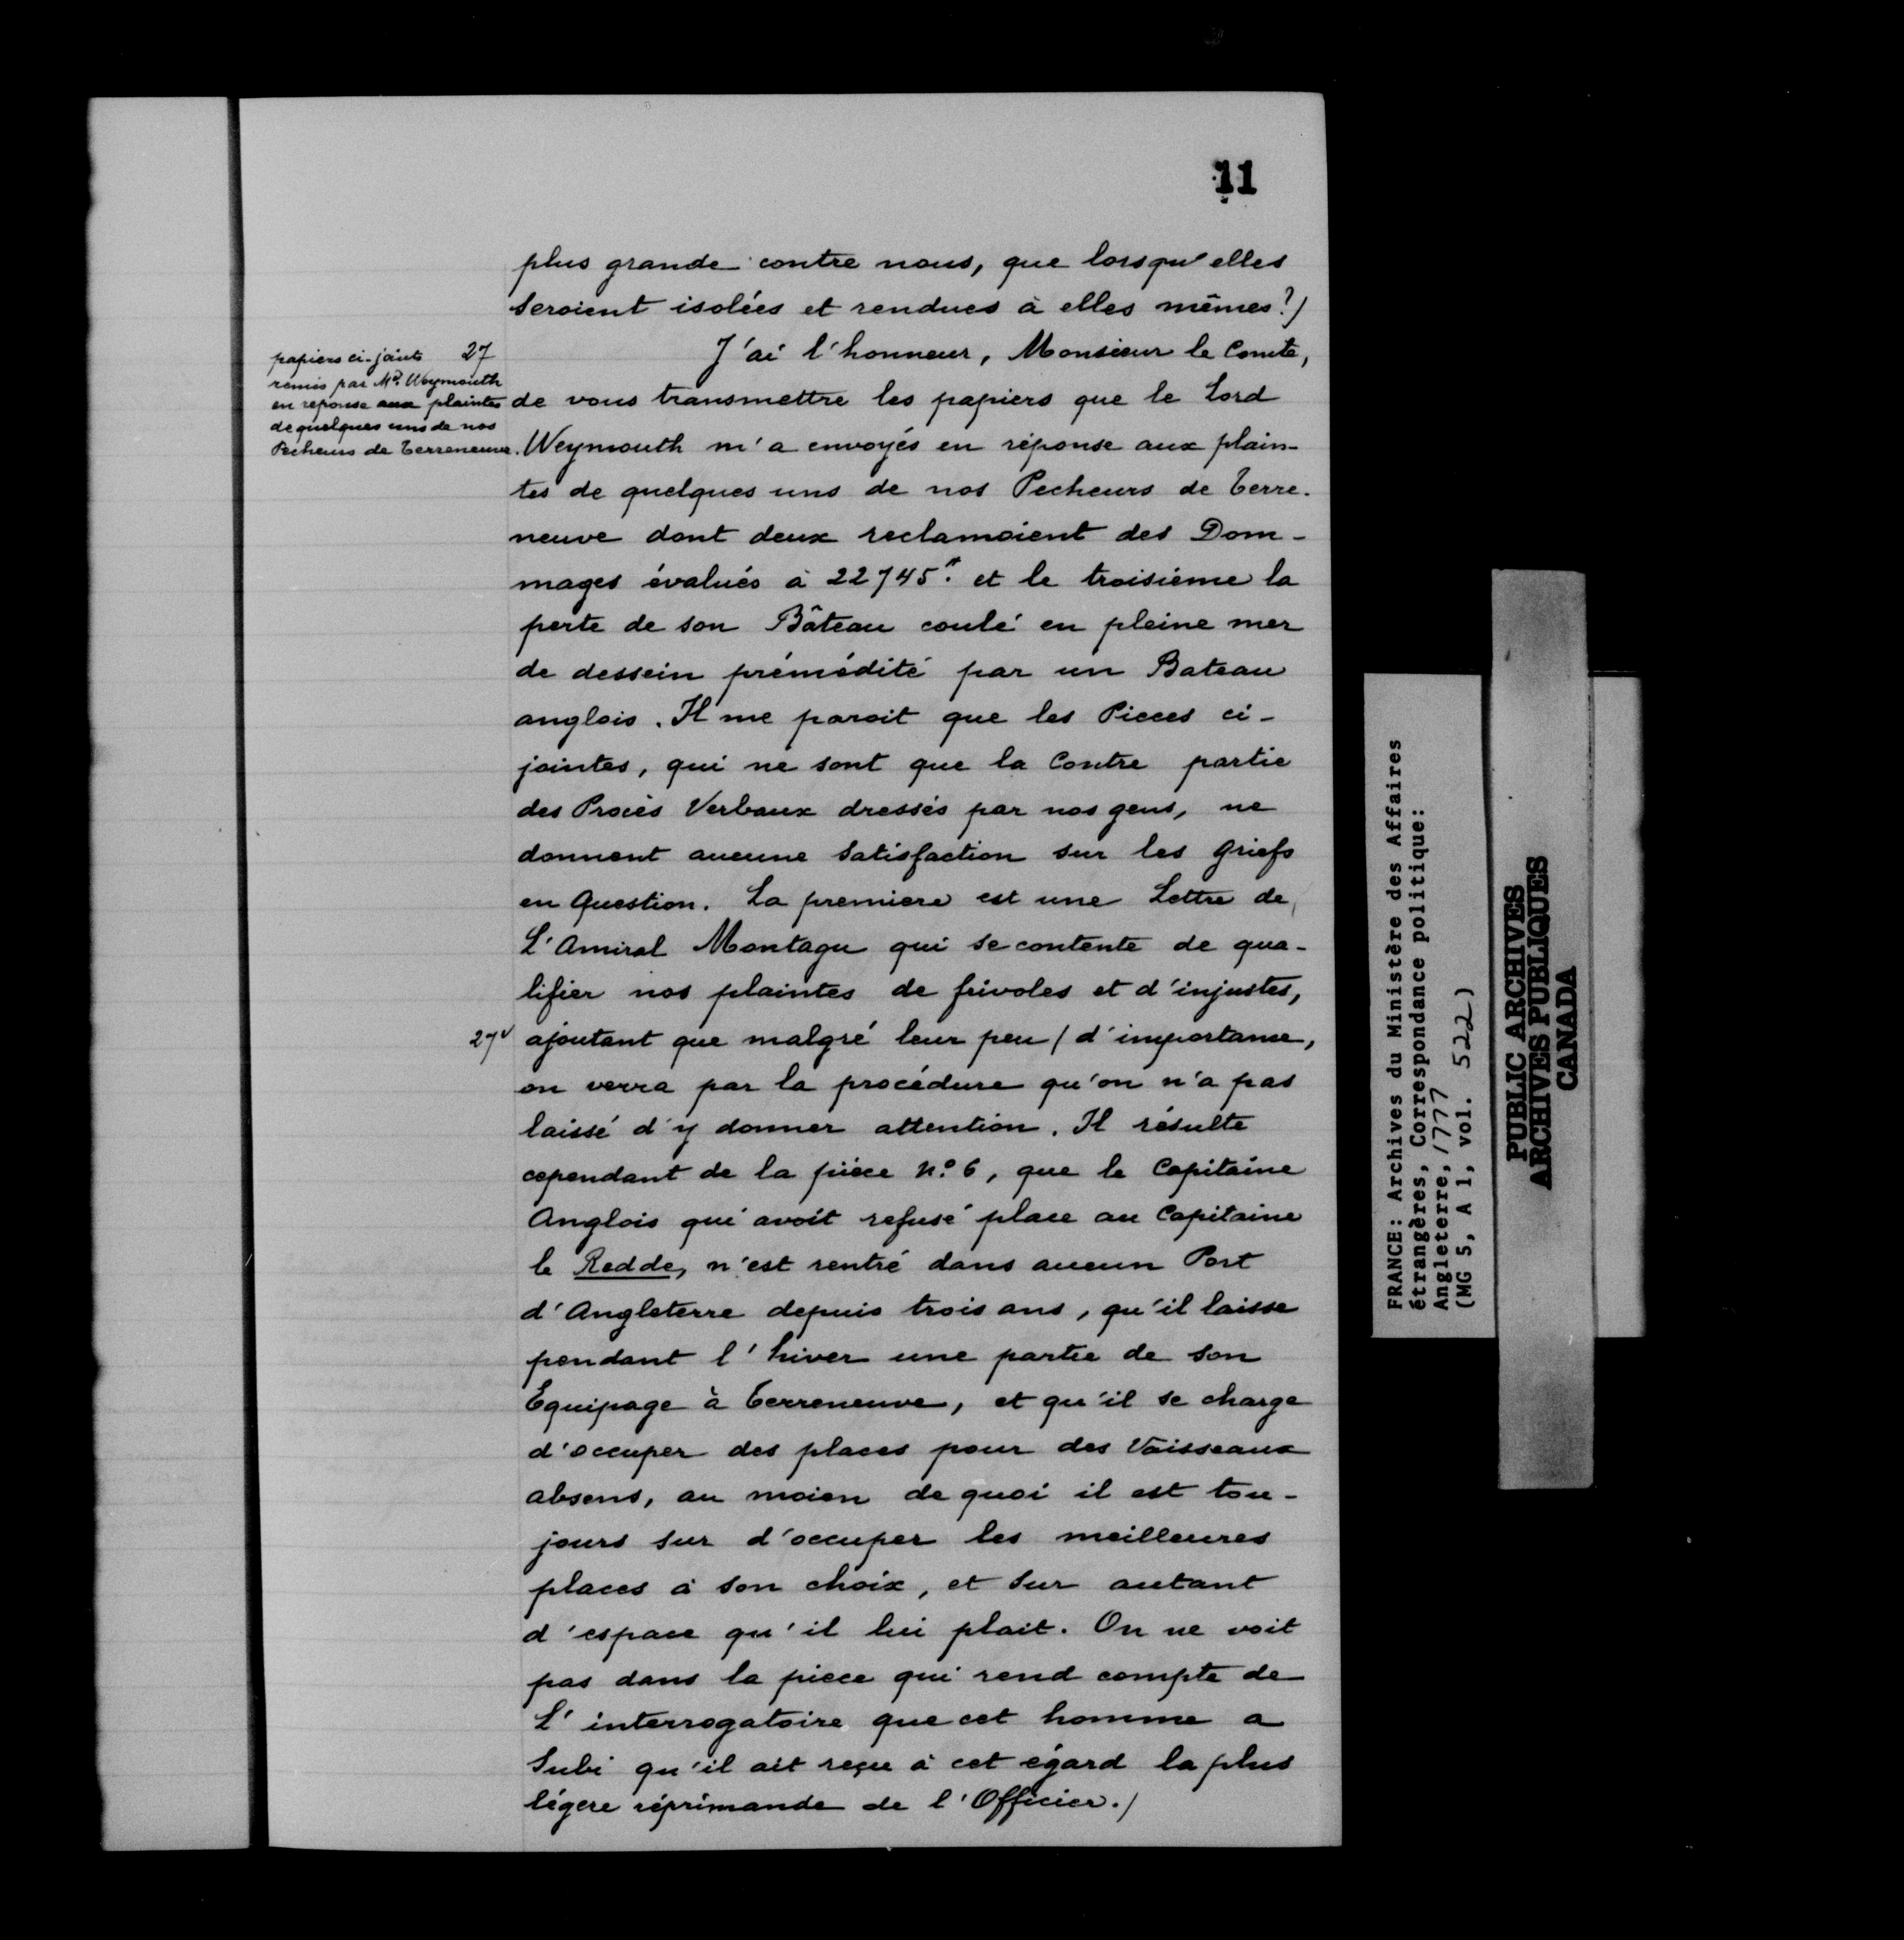 11
plus grande contre nous, que lorsqu'elles
seroient isolées et rendues à elles mêmes?/
papiers ci-joints 27
remis par Md. Weymouth
en reponse aux plaintes
de quelques uns de nos
Pecheurs de Terreneuve.
J'ai l'honneur, Monsieur le Comte,
de vous transmettre les papiers que le Lord
Weymouth m'a envoyés en réponse aux plain-
tes de quelques uns de nos Pecheurs de Terre.
neuve dont deux reclamoient des Dom-
mages évalués à 22745.# et le troisième la
perte de son Bâteau coulé en pleine mer
de dessein prémédité par un Bateau
anglois. Il me paroit que les Pieces ci-
jointes, qui ne sont que la Contre partie
des Procès Verbaux dressés par nos gens, ne
donnent aucune satisfaction sur les griefs
en Question. La premiere est une Lettre de
L'Amiral Montagu qui se contente de qua-
lifier nos plaintes de frivoles et d'injustes,
27v ajoutant que malgré leur peu / d'importance,
on verra par la procédure qu'on n'a pas
laissé d'y donner attention. Il résulte
cependant de la pièce n.o 6, que le Capitaine
Anglois qui avoit refusé place au Capitaine
le Redde, n'est rentré dans aucun Port
d'Angleterre depuis trois ans, qu'il laisse
pendant l'hiver une partie de son
Equipage à Terreneuve, et qu'il se charge
d'occuper des places pour des Vaisseaux
absens, au moien de quoi il est tou-
jours sur d'occuper les meilleures
places à son choix, et sur autant
d'espace qu'il lui plait. On ne voit
pas dans la piece qui rend compte de
L'interrogatoire que cet homme a
subi qu'il ait reçu à cet égard la plus
légere réprimande de l'Officier./
FRANCE: Archives du Ministère des Affaires
étrangères, Correspondance politique:
Angleterre, 1777
(MG 5, A 1, vol. 522)
PUBLIC ARCHIVES
ARCHIVES PUBLIQUES
CANADA